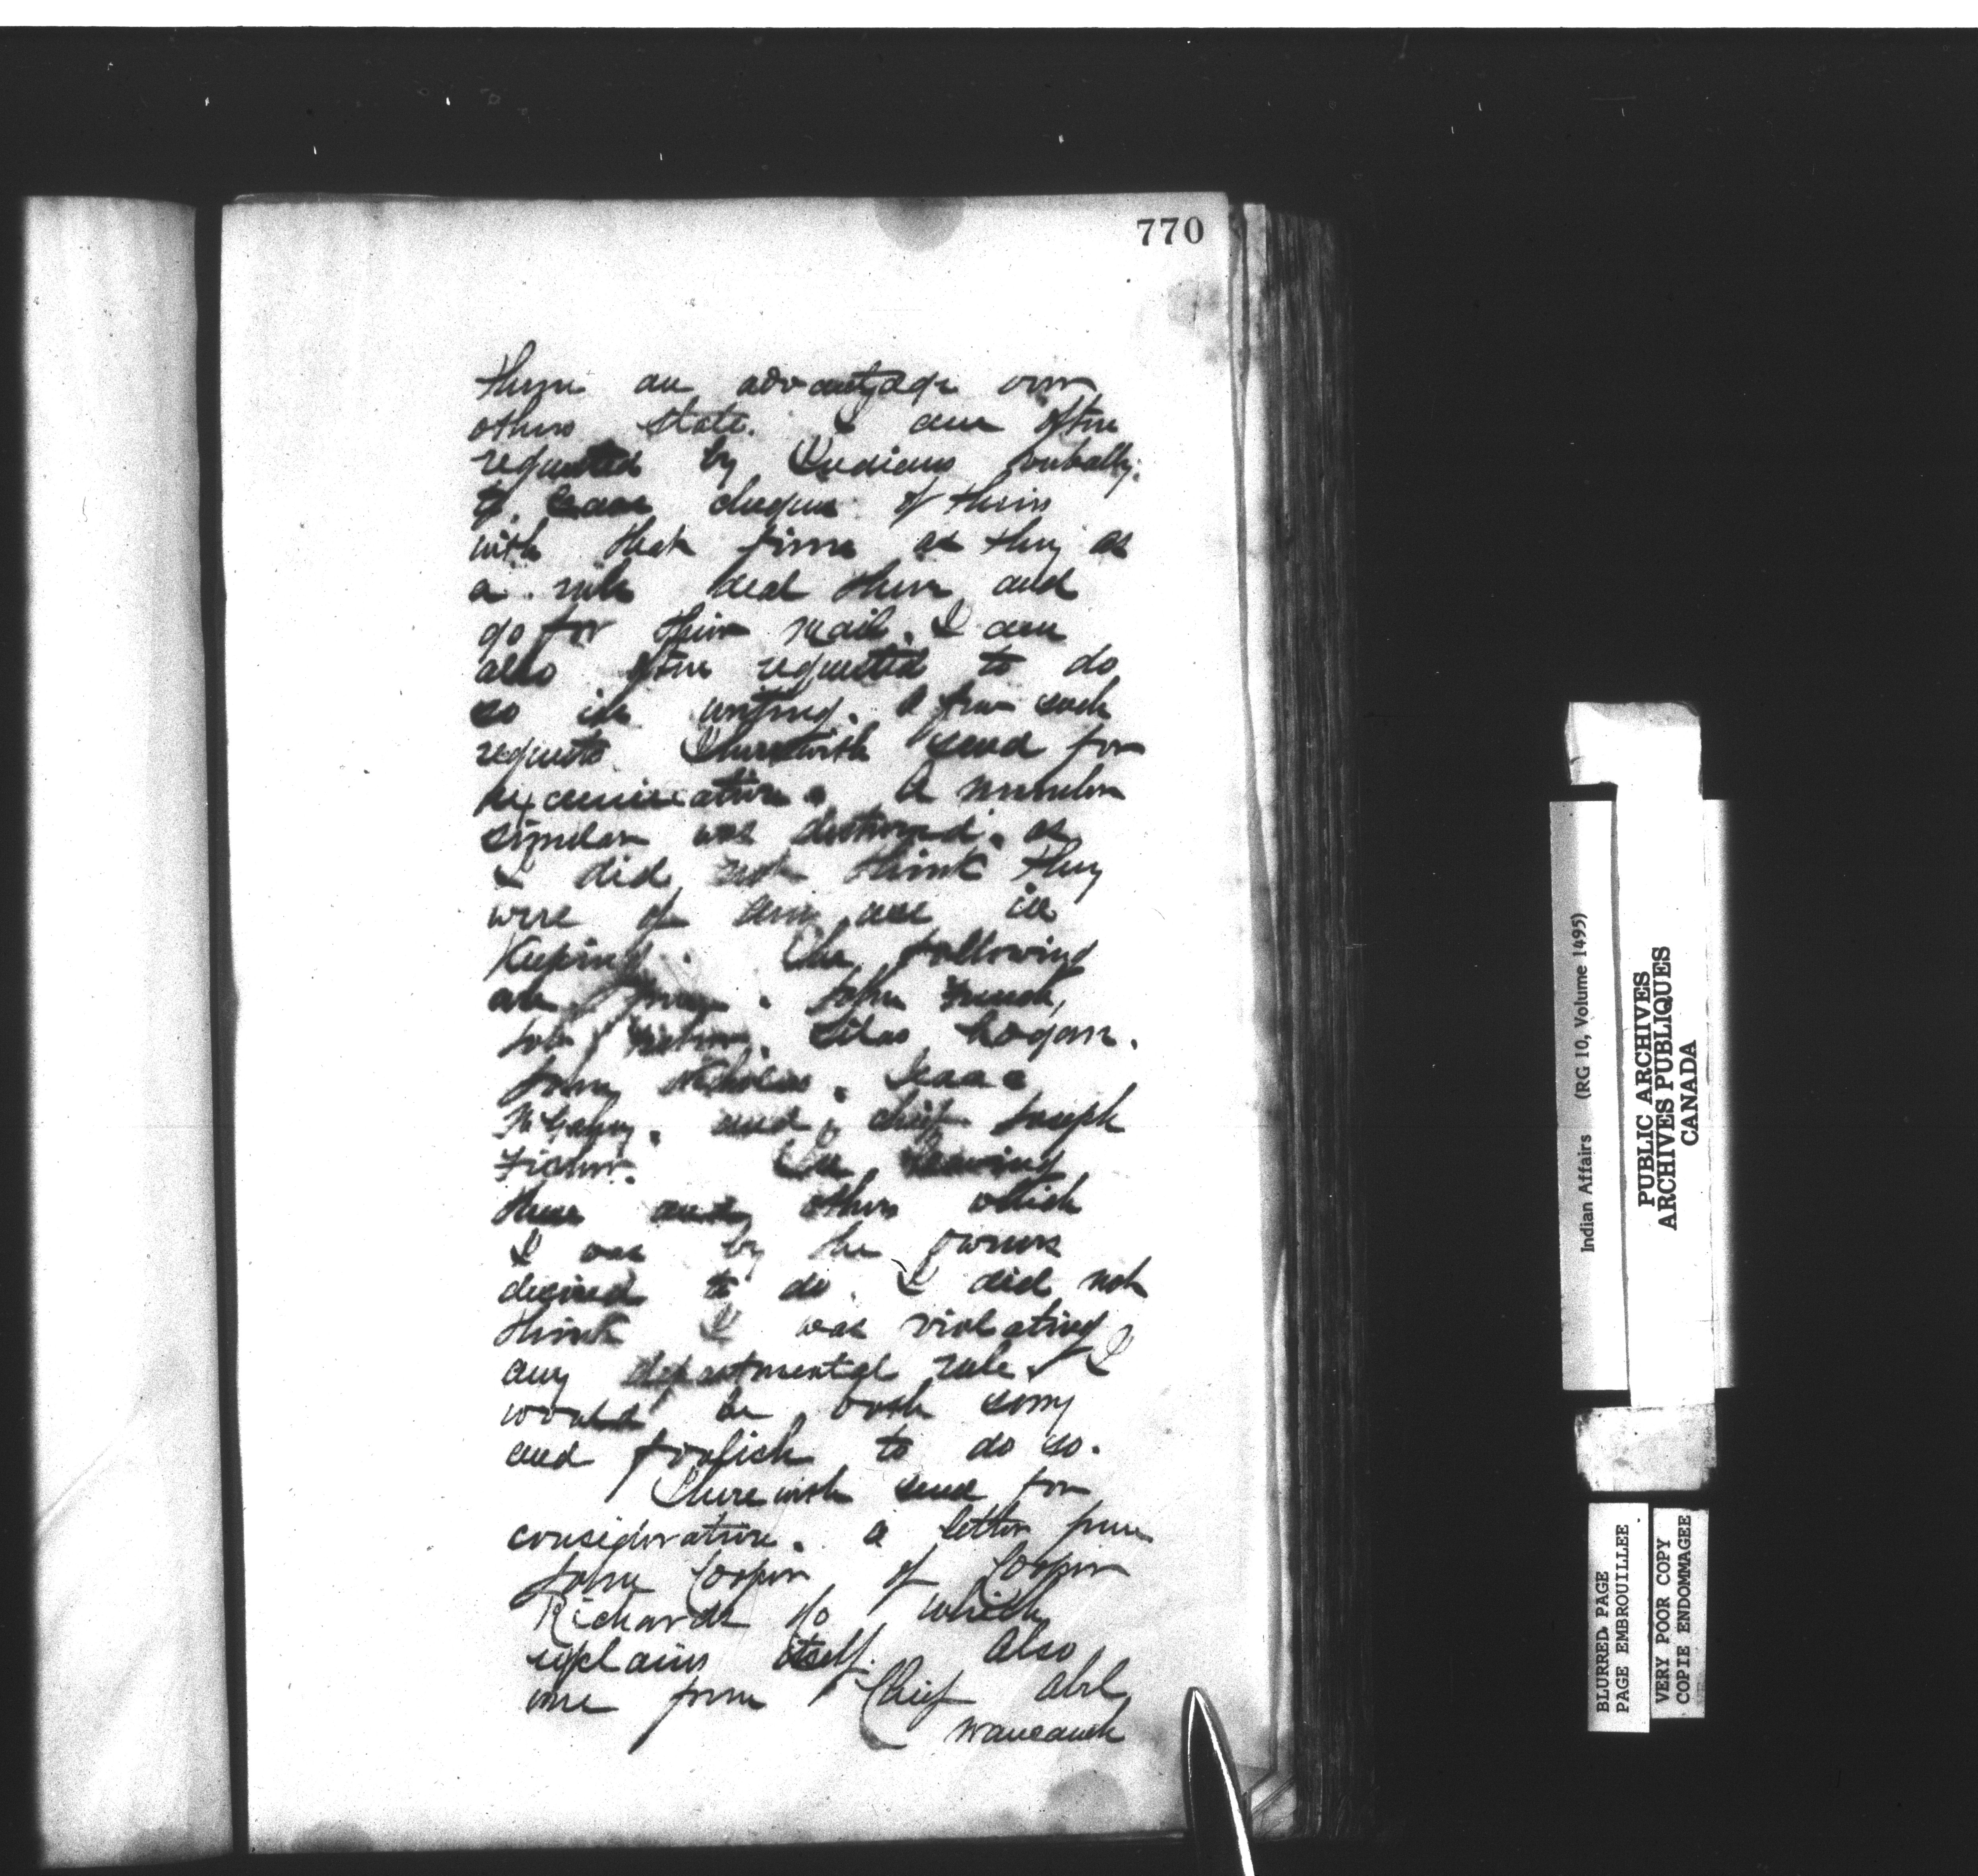 770
them an advantage over
others state. I am often
requested by Indians verbally.
to leave cheques of theirs
with that firm as they as
a rule deal there and
go for their mail. I am
also often requested to do
so in writing. A few such
requests I herewith send for
examination. A number
similar was destroyed. as
I did not think they
were of any use in
Keeping. The following
are from. John French,
Silas Logan.
John Nicholas. Isaac
McGahey. and, chief Joseph
Fisher. In leaving
these and others which
I was by the owners
desired to do. I did not
think I was violating
any departmental rule. I
would be both sorry
and foolish to do so.
I herewith send for
consideration. a letter from
John Cooper of Cooper
Richards Co which
explains itself. Also
one from Chief Abel
Waucaush
Indian Affairs (RG 10, Volume 1495)
PUBLIC ARCHIVES
ARCHIVES PUBLIQUES
CANADA
BLURRED PAGE
PAGE EMBROUILLEE
VERY POOR COPY
COPIE ENDOMMAGEE